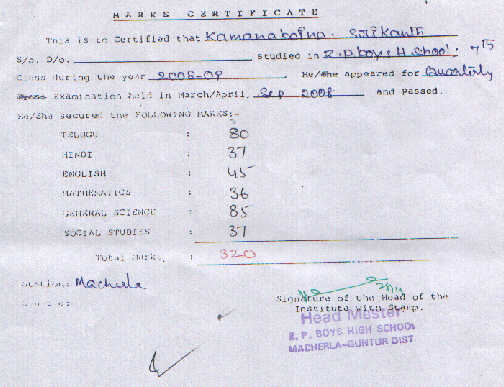 MARKS CERTIFICATE
This is to Certified that Kamanaboina. Srikanth
S/o, D/o. studied in Z.P.boys H.School.
Class during the year 2008-09. He/She appeared for Quarterly
Examination held in March/April, Sep 2008 and Passed.
He/She secured the FOLLOWING MARKS:-
TELUGU : 80
HINDI : 37
ENGLISH : 45
MATHEMATICS : 36
GENERAL SCIENCE : 85
SOCIAL STUDIES : 37
Total Marks, : 320
Station: Macherla
Signature of the Head of the
Institute with Stamp.
Head Master
Z. P. BOYS HIGH SCHOOL
MACHERLA-GUNTUR DIST